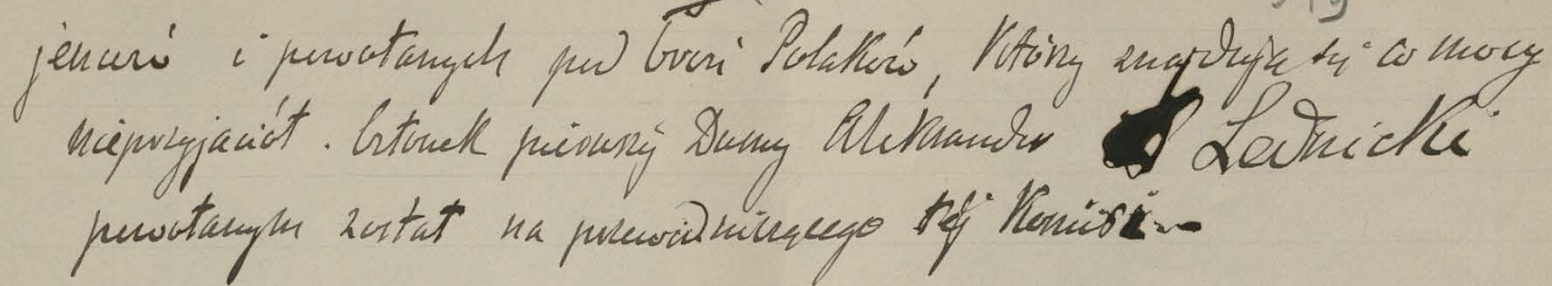 jeńców i powołanych pod broń Polaków, którzy znajdują się w mocy
nieprzyjaciół. Członek pierwszej Dumy Aleksander Lednicki
powołanym został na przewodniczącego tej Komisi. —